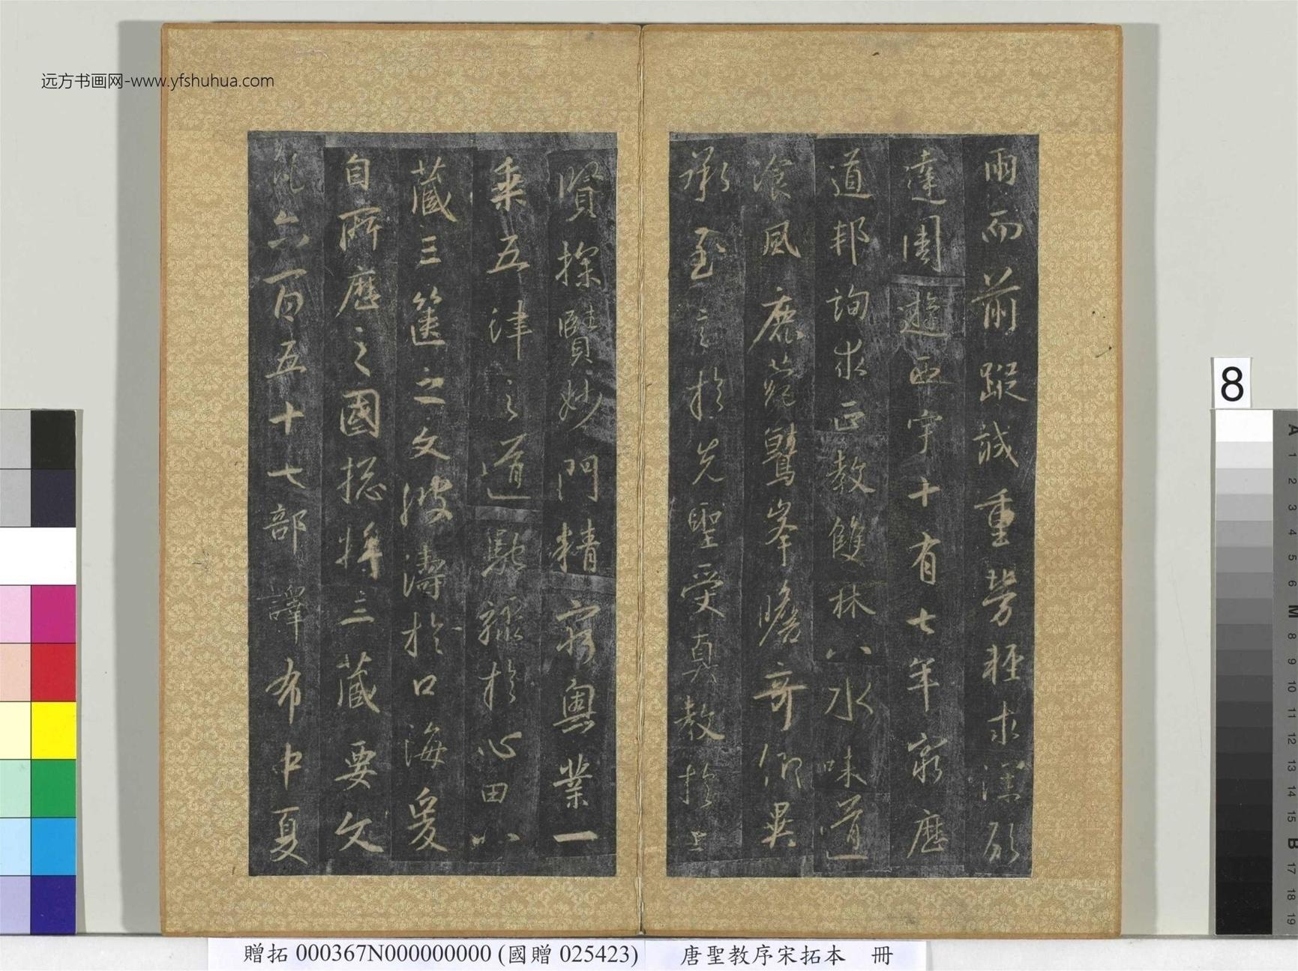 远方书画网-www.yfshuhua.com
雨而前蹤誠重勞輕求深願
達周遊西宇十有七年窮歷
道邦詢求正教雙林八水味道
飡風鹿菀鷲峯瞻奇仰異
承至言於先聖受真教於上
賢探賾妙門精窮奧業一
乘五律之道馳驟於心田八
藏三篋之文波濤於口海爰
自所歷之國揔將三藏要文
凡六百五十七部譯布中夏
8
A 1 2 3 4 5 6 M 8 9 10 11 12 13 14 15 B 17 18 19
贈拓 000367N000000000 (國贈 025423)
唐聖教序宋拓本 冊